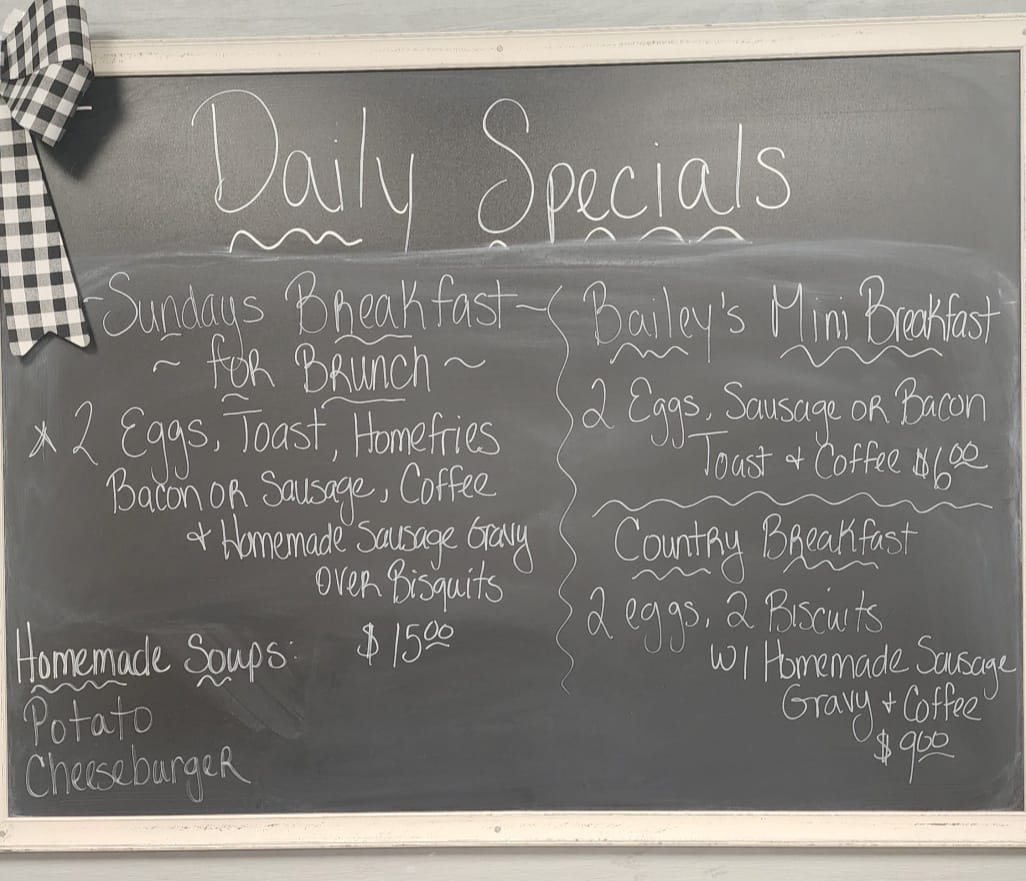 Daily Specials
-Sundays Breakfast-
~ for Brunch ~
* 2 Eggs, Toast, Homefries
Bacon or Sausage, Coffee
+ Homemade Sausage Gravy
over Bisquits
$15.00
Homemade Soups:
Potato
Cheeseburger
Bailey's Mini Breakfast
2 Eggs, Sausage or Bacon
Toast + Coffee $6.00
Country Breakfast
2 eggs, 2 Biscuits
w/ Homemade Sausage
Gravy + Coffee
$9.00